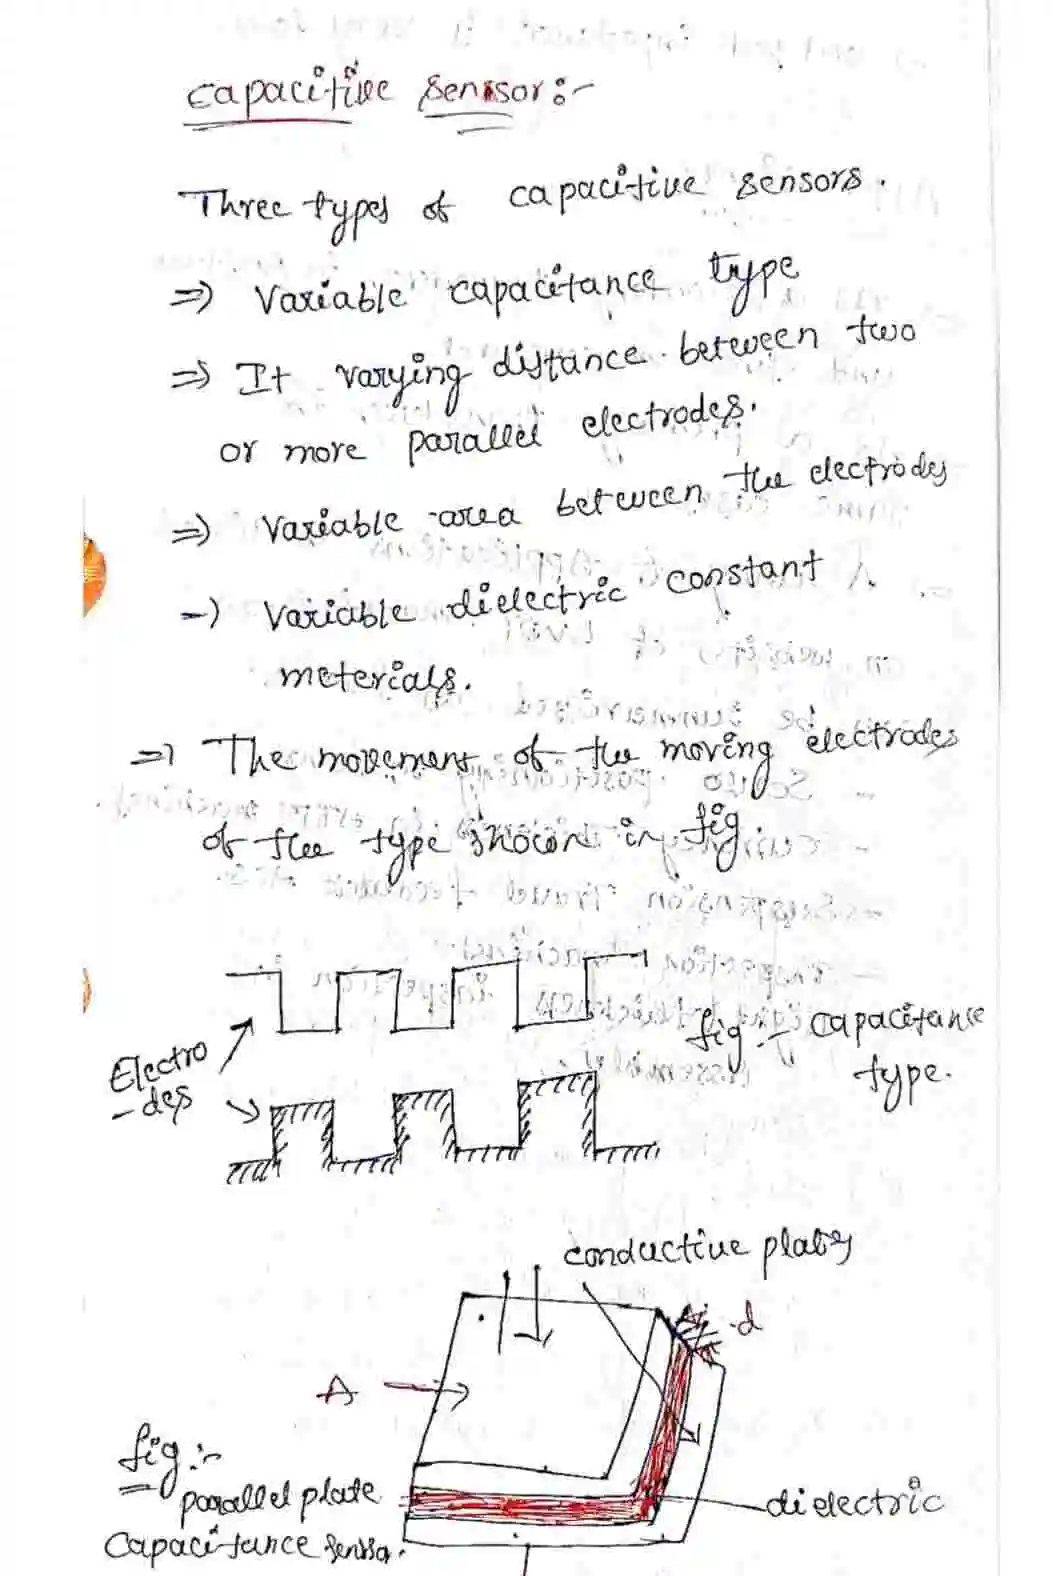 capacitive sensor:-
Three types of capacitive sensors.
=> Variable capacitance type
=> It varying distance between two
or more parallel electrodes.
=> Variable area between the electrodes
-) Variable dielectric constant
meterials.
=> The movement of the moving electrodes
of the type shown in fig.
Electro
-des
fig:- capacitance
type.
conductive plates
d
A
fig:-
parallel plate
Capacitance sensor.
dielectric